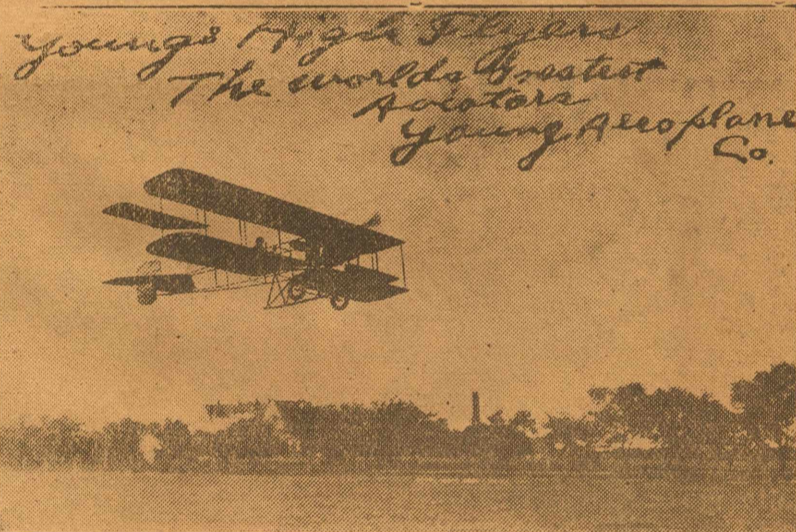 Youngs High Flyers
The worlds Greatest
Aviators
Young Aeroplane
Co.